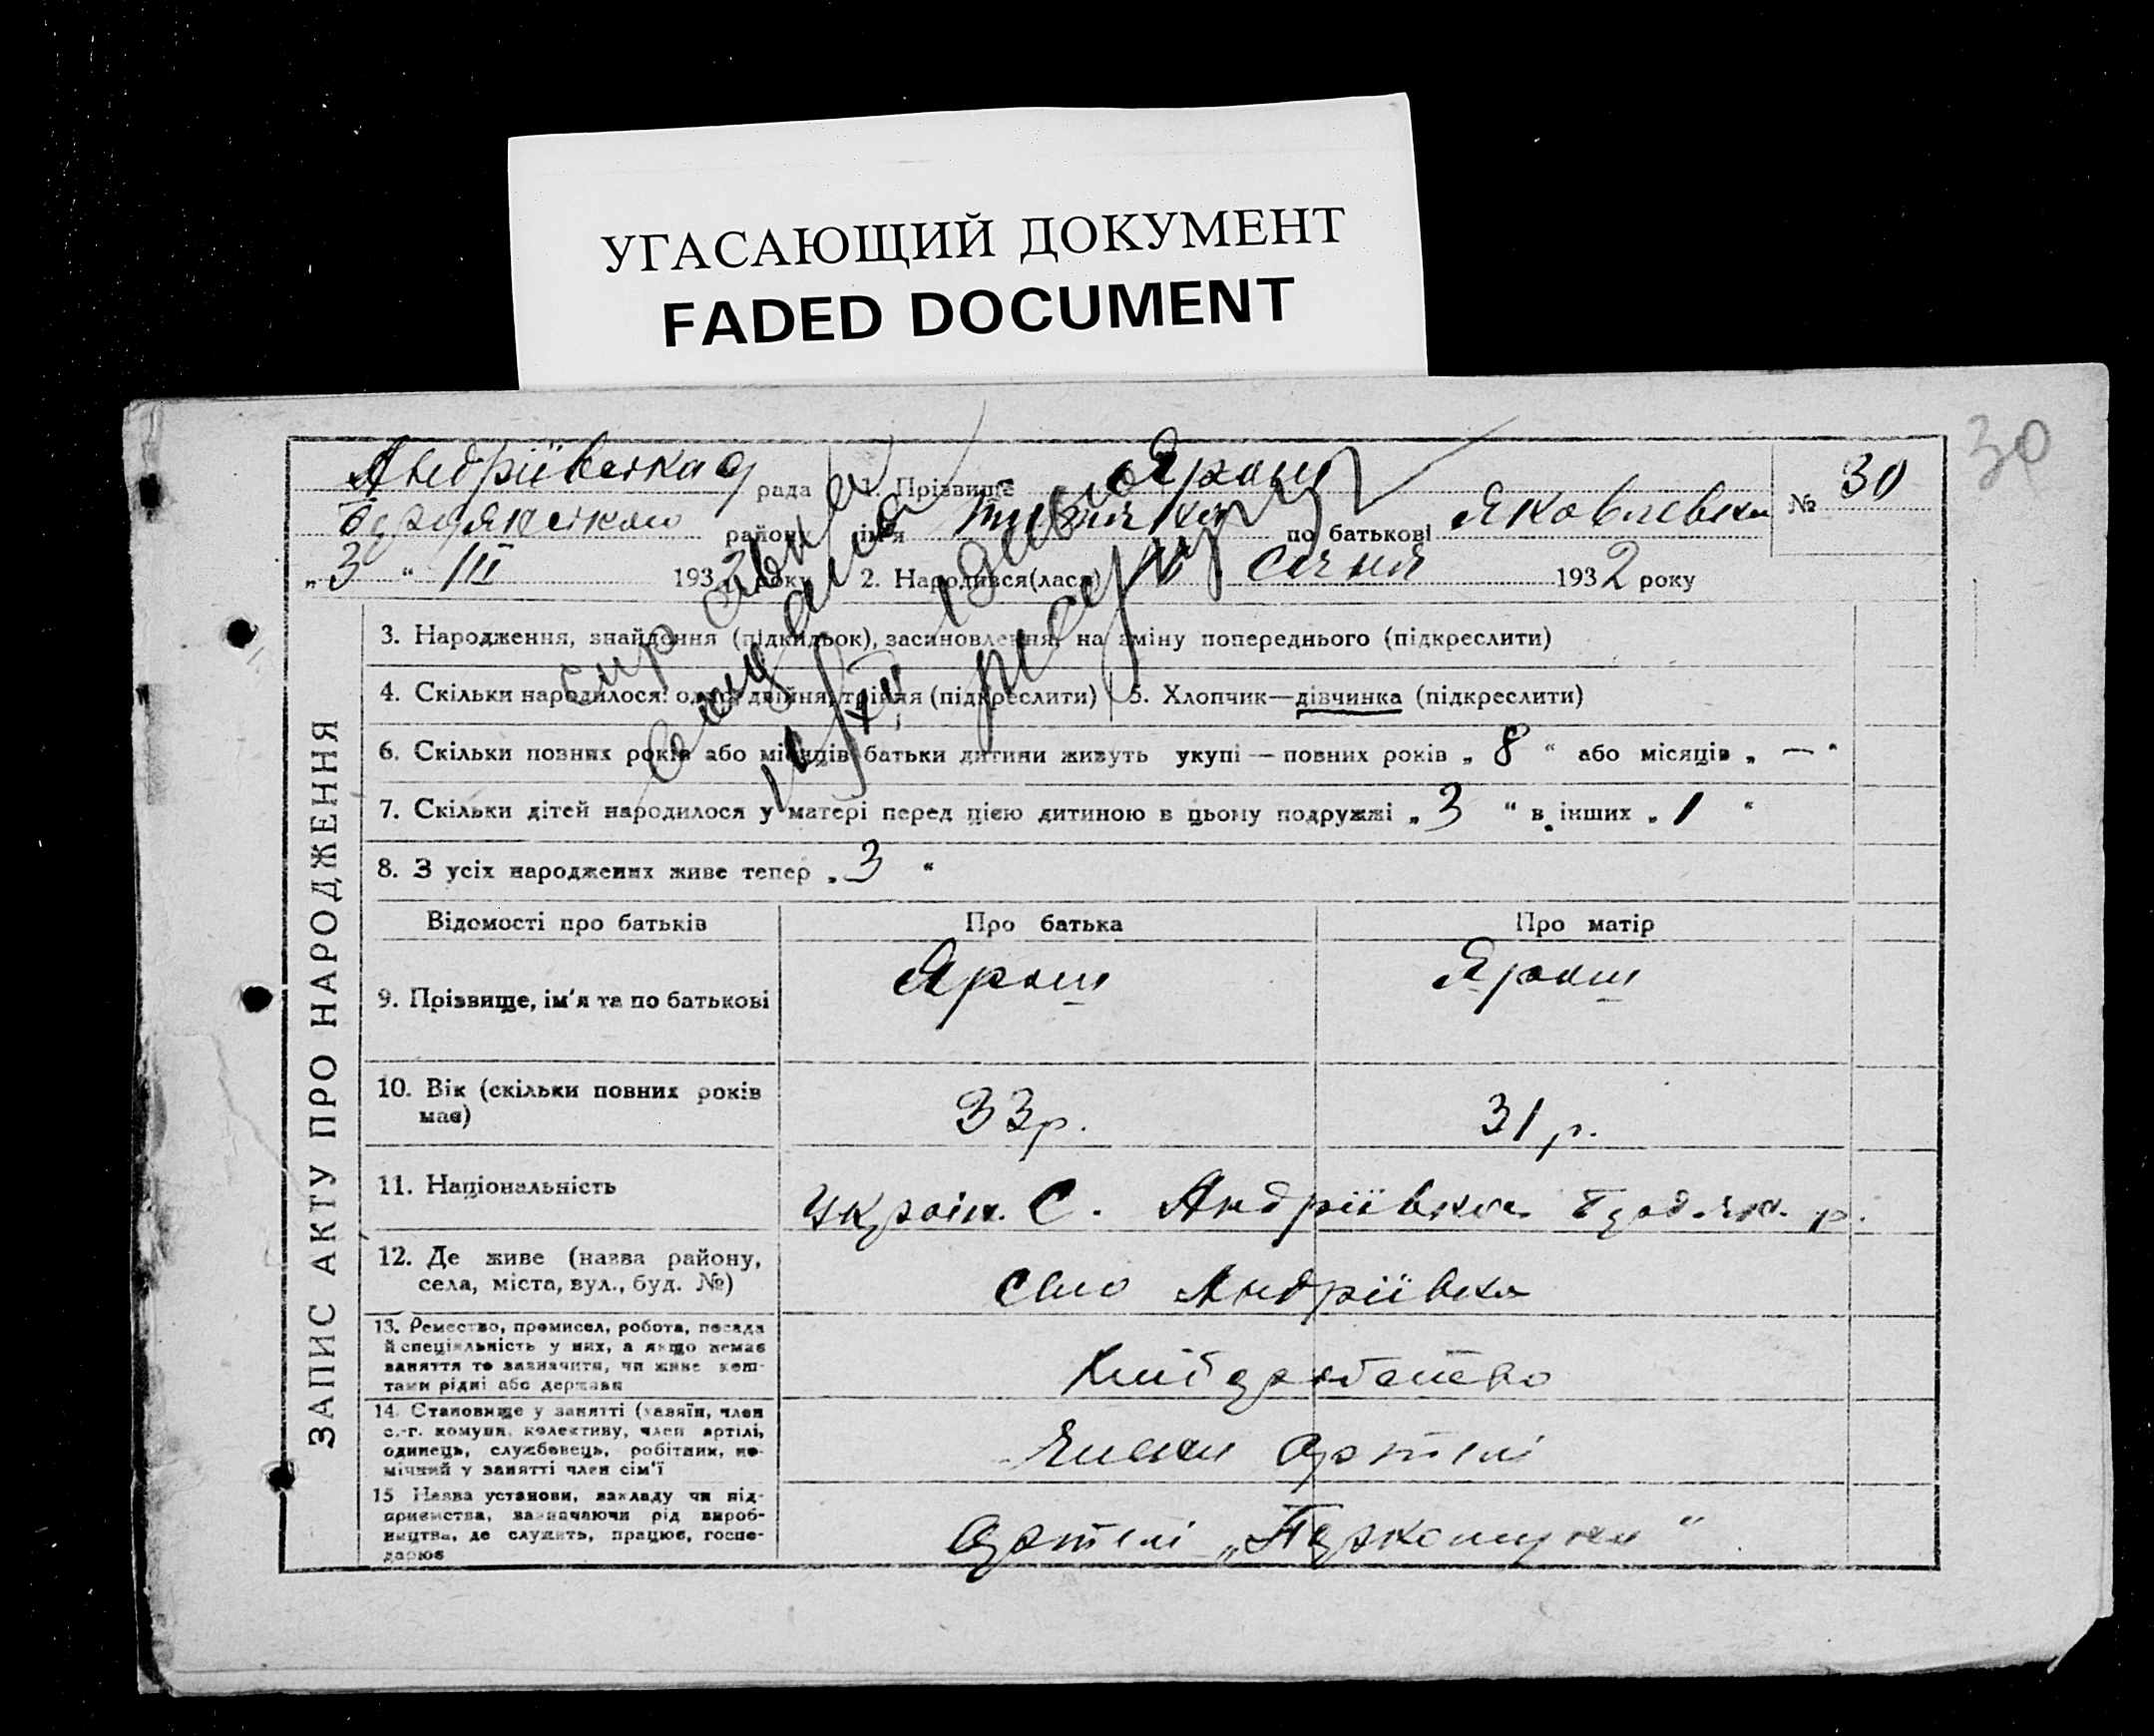 УГАСАЮЩИЙ ДОКУМЕНТ
FADED DOCUMENT
30
Андріївська рада
району
„3“ III 1932 року
1. Прізвище Ярош
ім'я по батькові Яковлевна
№ 30
2. Народився(лася) січня 1932 року
ЗАПИС АКТУ ПРО НАРОДЖЕННЯ
3. Народження, знайдення (підкидьок), засиновлення, на зміну попереднього (підкреслити)
4. Скільки народилося: одно, двійня, трійня (підкреслити)
5. Хлопчик—дівчинка (підкреслити)
6. Скільки повних років або місяців батьки дитини живуть укупі — повних років „ 8 “ або місяців „ — “
7. Скільки дітей народилося у матері перед цією дитиною в цьому подружжі „ 3 “ в інших „ 1 “
8. З усіх народжених живе тепер „ 3 “
Відомості про батьків Про батька Про матір
9. Прізвище, ім'я та по батькові Ярош Ярош
10. Вік (скільки повних років
має) 33 р. 31 р.
11. Національність Україн. С. Андріївка р.
12. Де живе (назва району,
села, міста, вул., буд. №) село Андріївка
13. Ремество, промисел, робота, посада
й спеціяльність у них, а якщо немає
заняття то зазначити, чи живе кош-
тами рідні або держави
Хліборобство
14. Становище у занятті (хазяїн, член
с.-г. комуни, колективу, член артілі,
одинець, службовець, робітник, по-
мічний у занятті член сім'ї
Член артілі
15 Назва установи, закладу чи під-
приємства, зазначаючи рід вироб-
ництва, де служить, працює, госпо-
дарює
артілі